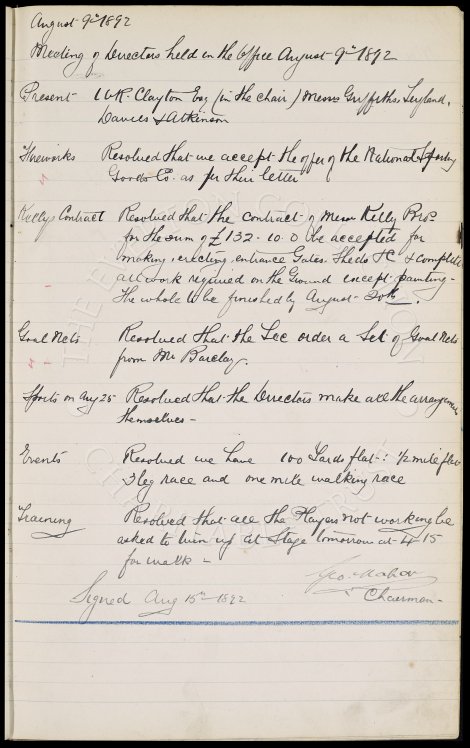 August 9th 1892
Meeting of Directors held in the Office August 9th 1892
Present W.R. Clayton Esq (in the chair) Messrs Griffiths, Leyland,
Davies & Atkinson
Fireworks Resolved that we accept the offer of the National Sporting
Goods Co. as per their letter
Kellys Contract Resolved that the contract of Messrs Kelly Bros
for the sum of £132-10.0 be accepted for
making & erecting entrance Gates, Sheds &c & complete
all work required on the Ground except painting -
The whole to be finished by August 20th.
Goal Nets Resolved that the Sec order a Set of Goal Nets
from Mr Barclay.
Sports on Aug 25 Resolved that the Directors make all the arrangements
themselves -
Events Resolved we have 100 Yards flat: ½ mile flat
3 leg race and one mile walking race
Training Resolved that all the Players not working be
asked to turn up at Stage tomorrow at 4.15
for walk -
Geo. Mahon
Signed Aug 15th 1892 Chairman -